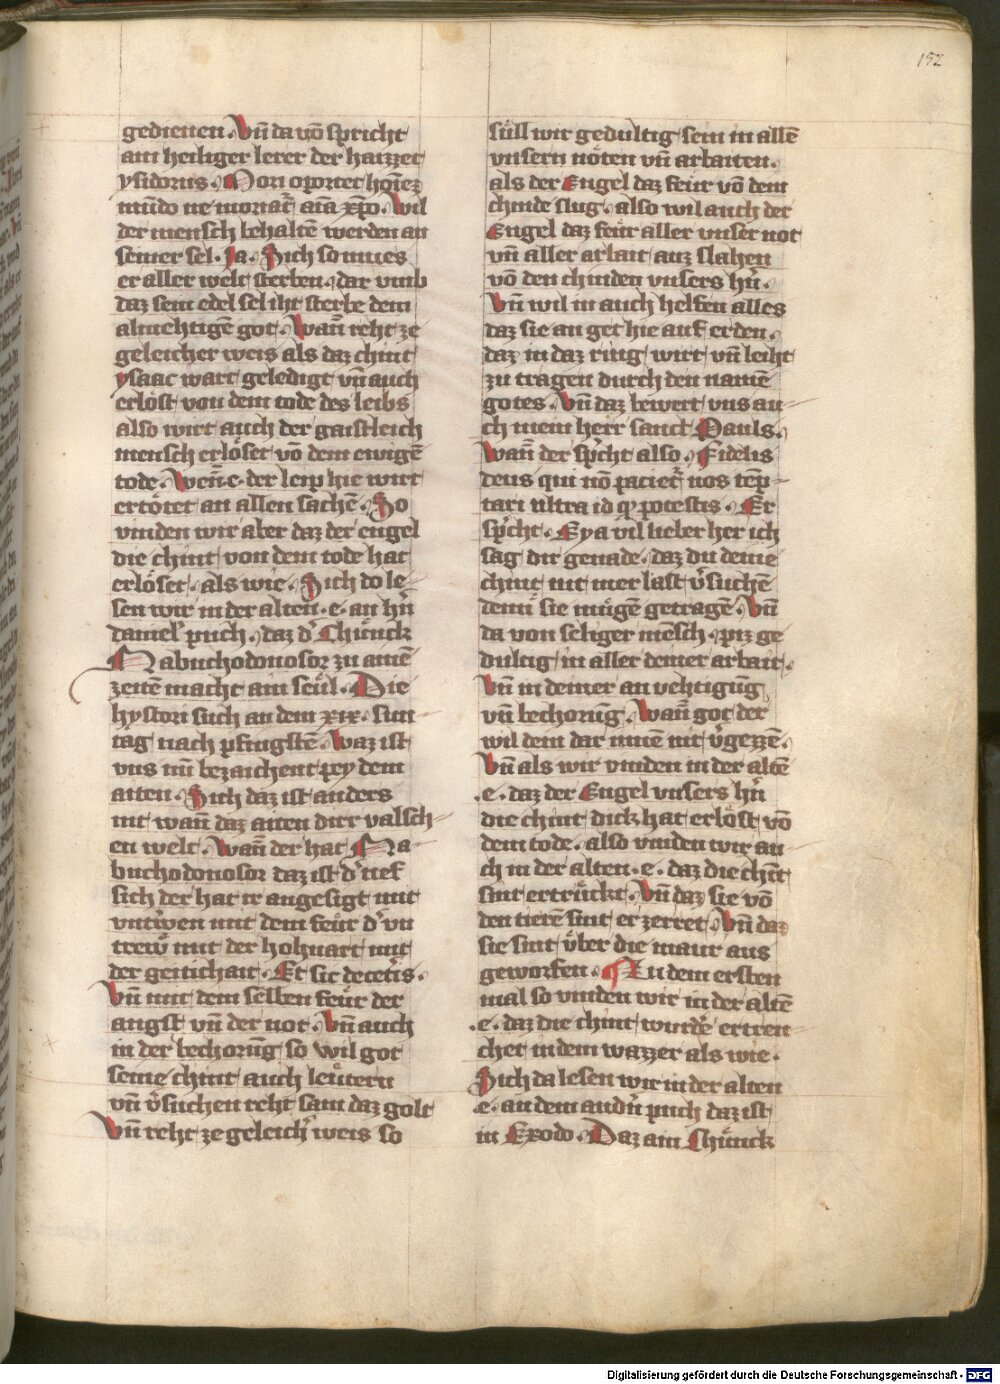 152
gedienen. Vn̄ da vō spricht
ain heiliger lerer der haizzet
ysidorus. Mori oportet hoīez
mūdo ne moriat᷑ aīa xp̄o. Wil
der mensch behaltē werden an
seiner sel. Ja. Sich so mues
er aller welt sterben. dar vmb
daz sein edel sel iht sterbe dem
almehtigē got. Wan̄ reht ze
geleicher weis als daz chint
ysaac wart geledigt vn̄ auch
erlöst von dem tode des leibs
also wirt auch der gaistleich
mensch erlöset vō dem ewigē
tode. Wen̄ e. der leip hie wirt
ertötet an allen sachē. So
vinden wir aber daz der engel
die chint von dem tode hat
erlöset. als wie. Sich do le-
sen wir in der alten .e. an hn̄
daniel᷑ puch. daz d᷑ Chünck
Nabuchodonosor zu ainē
zeitē macht ain seül. Die
hystori such an dem xix. sun-
tag nach pfingstē. Waz ist
vns nū bezaichent pey dem
aiten. Sich daz ist anders
nit wan̄ daz aiten dirr valsch-
en welt. Wan̄ der hat Na-
buchodonosor daz ist d᷑ tief
sich der hat ir angesigt mit
vntriven mit dem feür d᷑ vn
trew̄ mit der hohuart mit
der geitichait. Et sic de cet᷑is.
Vn̄ mit dem selben feür der
angst vn̄ der not. Vn̄ auch
in der bechorūg so wil got
seine chint auch leütern
vn̄ v᷑suchen reht sam daz golt
Vn̄ reht ze geleich᷑ weis so
süll wir gedultig sein in allē
vnsern nöten vn̄ arbaiten.
als der Engel daz feür vō den
chinde slug. also wil auch der
Engel daz feür aller vnser not
vn̄ aller arbait auz slahen
vō den chinden vnsers hn̄.
Vn̄ wil in auch helfen alles
daz sie an get hie auf erden.
daz in daz ring wirt vn̄ leiht
zu tragen durch den namē
gotes. Vn̄ daz bewert vns au-
ch mein herr sanct Pauls.
Wan̄ der sp᷑cht also. Fidelis
deus qui nō paciet᷑ nos tēp-
tari ultra id qͦ potestis. Er
sp᷑cht. Eya vil lieber her ich
sag dir genade. daz du deine
chint nit mer last v᷑suchē
denn̄ sie mügē getragē. Vn̄
da von seliger mēsch. piz ge
dultig in aller deiner arbait.
Vn̄ in deiner an vehtigūg
vn̄ bechorūg. Wan̄ got der
wil dein dar innē nit v᷑gezzē.
Vn̄ als wir vinden in der altē
.e. daz der Engel vnsers hn̄
die chint dick hat erlöst vō
dem tode. also vinden wir au-
ch in der alten .e. daz die chīt
sint ertrückt. Vn̄ daz sie vō
den tierē sint erzerret. Vn̄ daz
sie sint über die maur aus
geworfen. Zu dem ersten
mal so vinden wir in der altē
.e. daz die chint wurdē ertren-
chet in dem wazzer als wie.
Sich da lesen wir in der alten
.e. an dem andn̄ puch daz ist
in Exodo. Daz ain Chünck
Digitalisierung gefördert durch die Deutsche Forschungsgemeinschaft - DFG